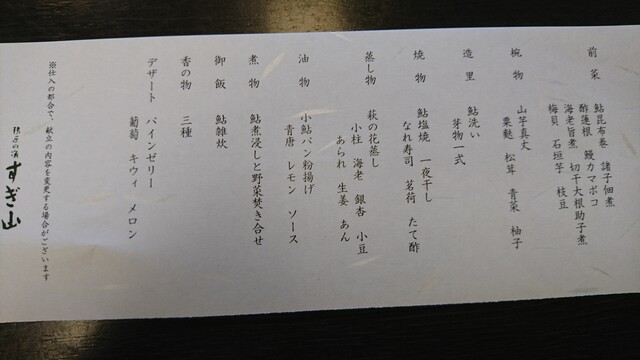 前菜　鮎昆布巻　諸子佃煮
酢蓮根　鰻カマボコ
海老旨煮　切干大根助子煮
梅貝　石垣芋　枝豆
椀物　山芋真丈
粟麩　松茸　青菜　柚子
造里　鮎洗い
芽物一式
焼物　鮎塩焼　一夜干し
なれ寿司　茗荷　たて酢
蒸し物　萩の花蒸し
小柱　海老　銀杏　小豆
あられ　生姜　あん
油物　小鮎パン粉揚げ
青唐　レモン　ソース
煮物　鮎煮浸しと野菜焚き合せ
御飯　鮎雑炊
香の物　三種
デザート　パインゼリー
葡萄　キウィ　メロン
※仕入の都合で、献立の内容を変更する場合がございます
すぎ山